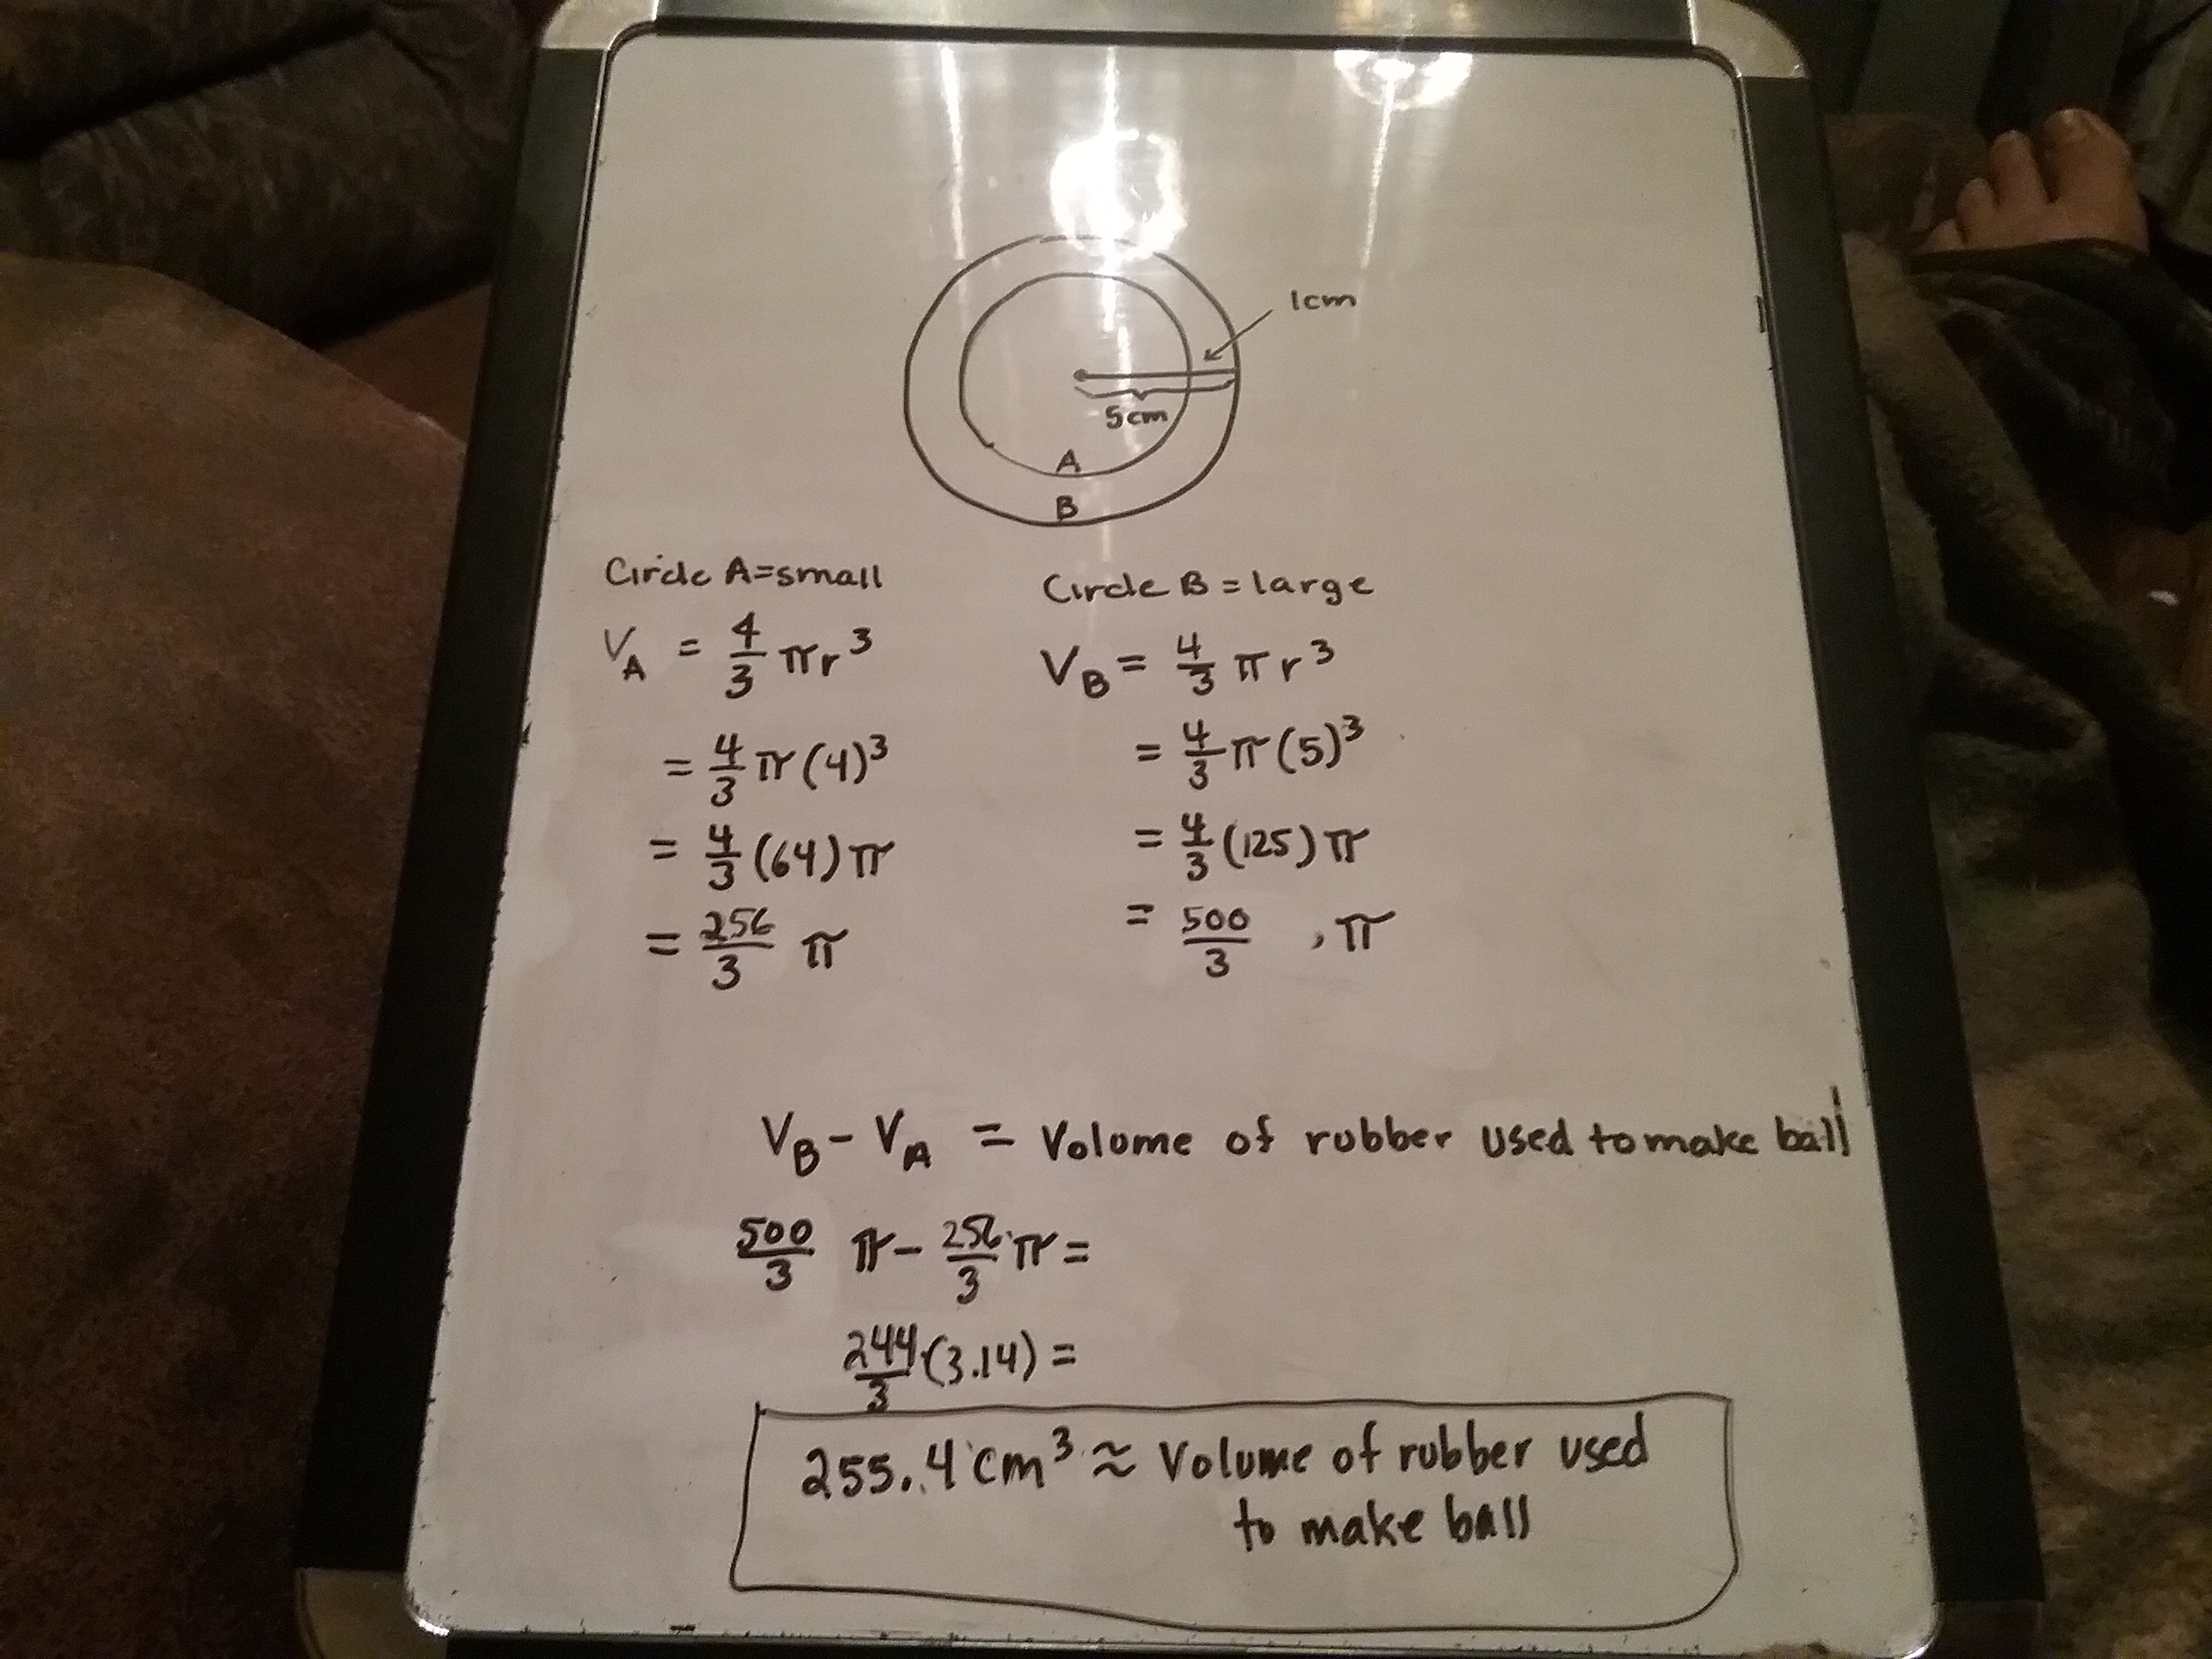 1cm
5cm
A
B
Circle A=small
V_A = 4/3 πr³
= 4/3 π(4)³
= 4/3 (64)π
= 256/3 π
Circle B = large
V_B = 4/3 π r³
= 4/3 π(5)³
= 4/3 (125)π
= 500/3 , π
V_B - V_A = Volume of rubber used to make ball
500/3 π - 256/3 π =
244/3 (3.14) =
255.4 cm³ ≈ Volume of rubber used
to make ball